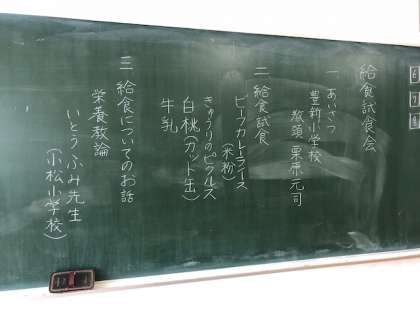 給食試食会
一 あいさつ
豊新小学校
教頭 栗原元司
二 給食試食
ビーフカレーライス
(米粉)
きゅうりのピクルス
白桃(カット缶)
牛乳
三 給食についてのお話
栄養教諭
いとう ふみ先生
(小松小学校)